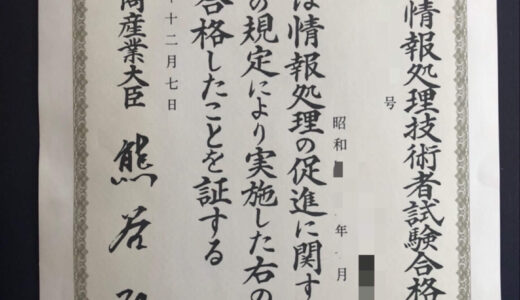 情報処理技術者試験合格
号
昭和 年 月
は情報処理の促進に関す
の規定により実施した右の
合格したことを証する
十二月七日
商産業大臣 熊谷